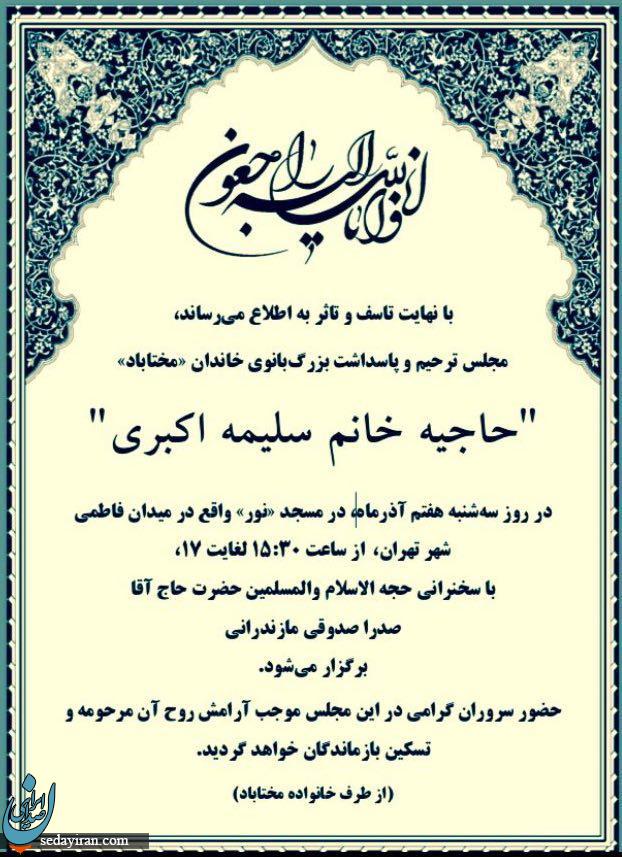 انا لله و انا الیه راجعون
با نهایت تاسف و تاثر به اطلاع می‌رساند،
مجلس ترحیم و پاسداشت بزرگ‌بانوی خاندان «مختاباد»
"حاجیه خانم سلیمه اکبری"
در روز سه‌شنبه هفتم آذرماه، در مسجد «نور» واقع در میدان فاطمی
شهر تهران، از ساعت ۱۵:۳۰ لغایت ۱۷،
با سخنرانی حجه الاسلام والمسلمین حضرت حاج آقا
صدرا صدوقی مازندرانی
برگزار می‌شود.
حضور سروران گرامی در این مجلس موجب آرامش روح آن مرحومه و
تسکین بازماندگان خواهد گردید.
(از طرف خانواده مختاباد)
صدای ایران
sedayiran.com